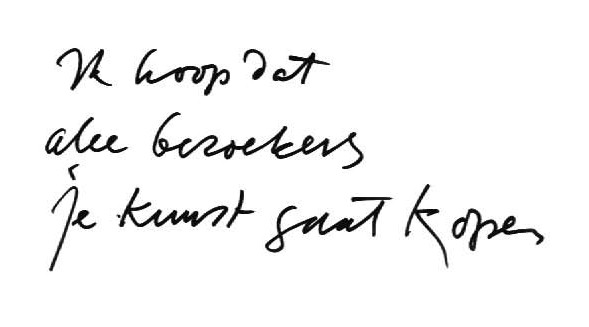 Ik hoop dat
alle bezoekers
je kunst gaat kopen